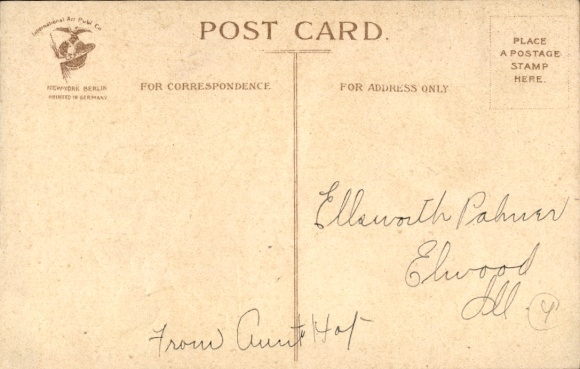 International Art Publ. Co.
NEW YORK BERLIN
PRINTED IN GERMANY
POST CARD.
PLACE
A POSTAGE
STAMP
HERE.
FOR CORRESPONDENCE
FOR ADDRESS ONLY
Ellsworth Palmer
Elwood
Ill
From Aunt Hat